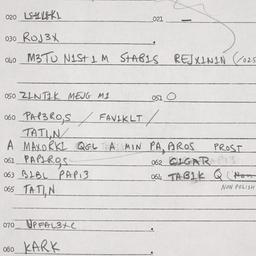 020 021 —
030 ROJ3X .
040 M3TU N1ST1M STAB1S REJX1N1N (/025
050 Z1NT1K MEJG M1 051 O
060 PAP3RO,S / FAV1KLT /
TAT1,N/
A MAXORK1 QGL A MIN PA,BROS PROST
061 PAP1ROS 062 C1GAR
063 B1BL PAP13 064 TAB1K Q
065 TAT1,N NON POLISH
070 UPFAL3XC .
080 KARK .